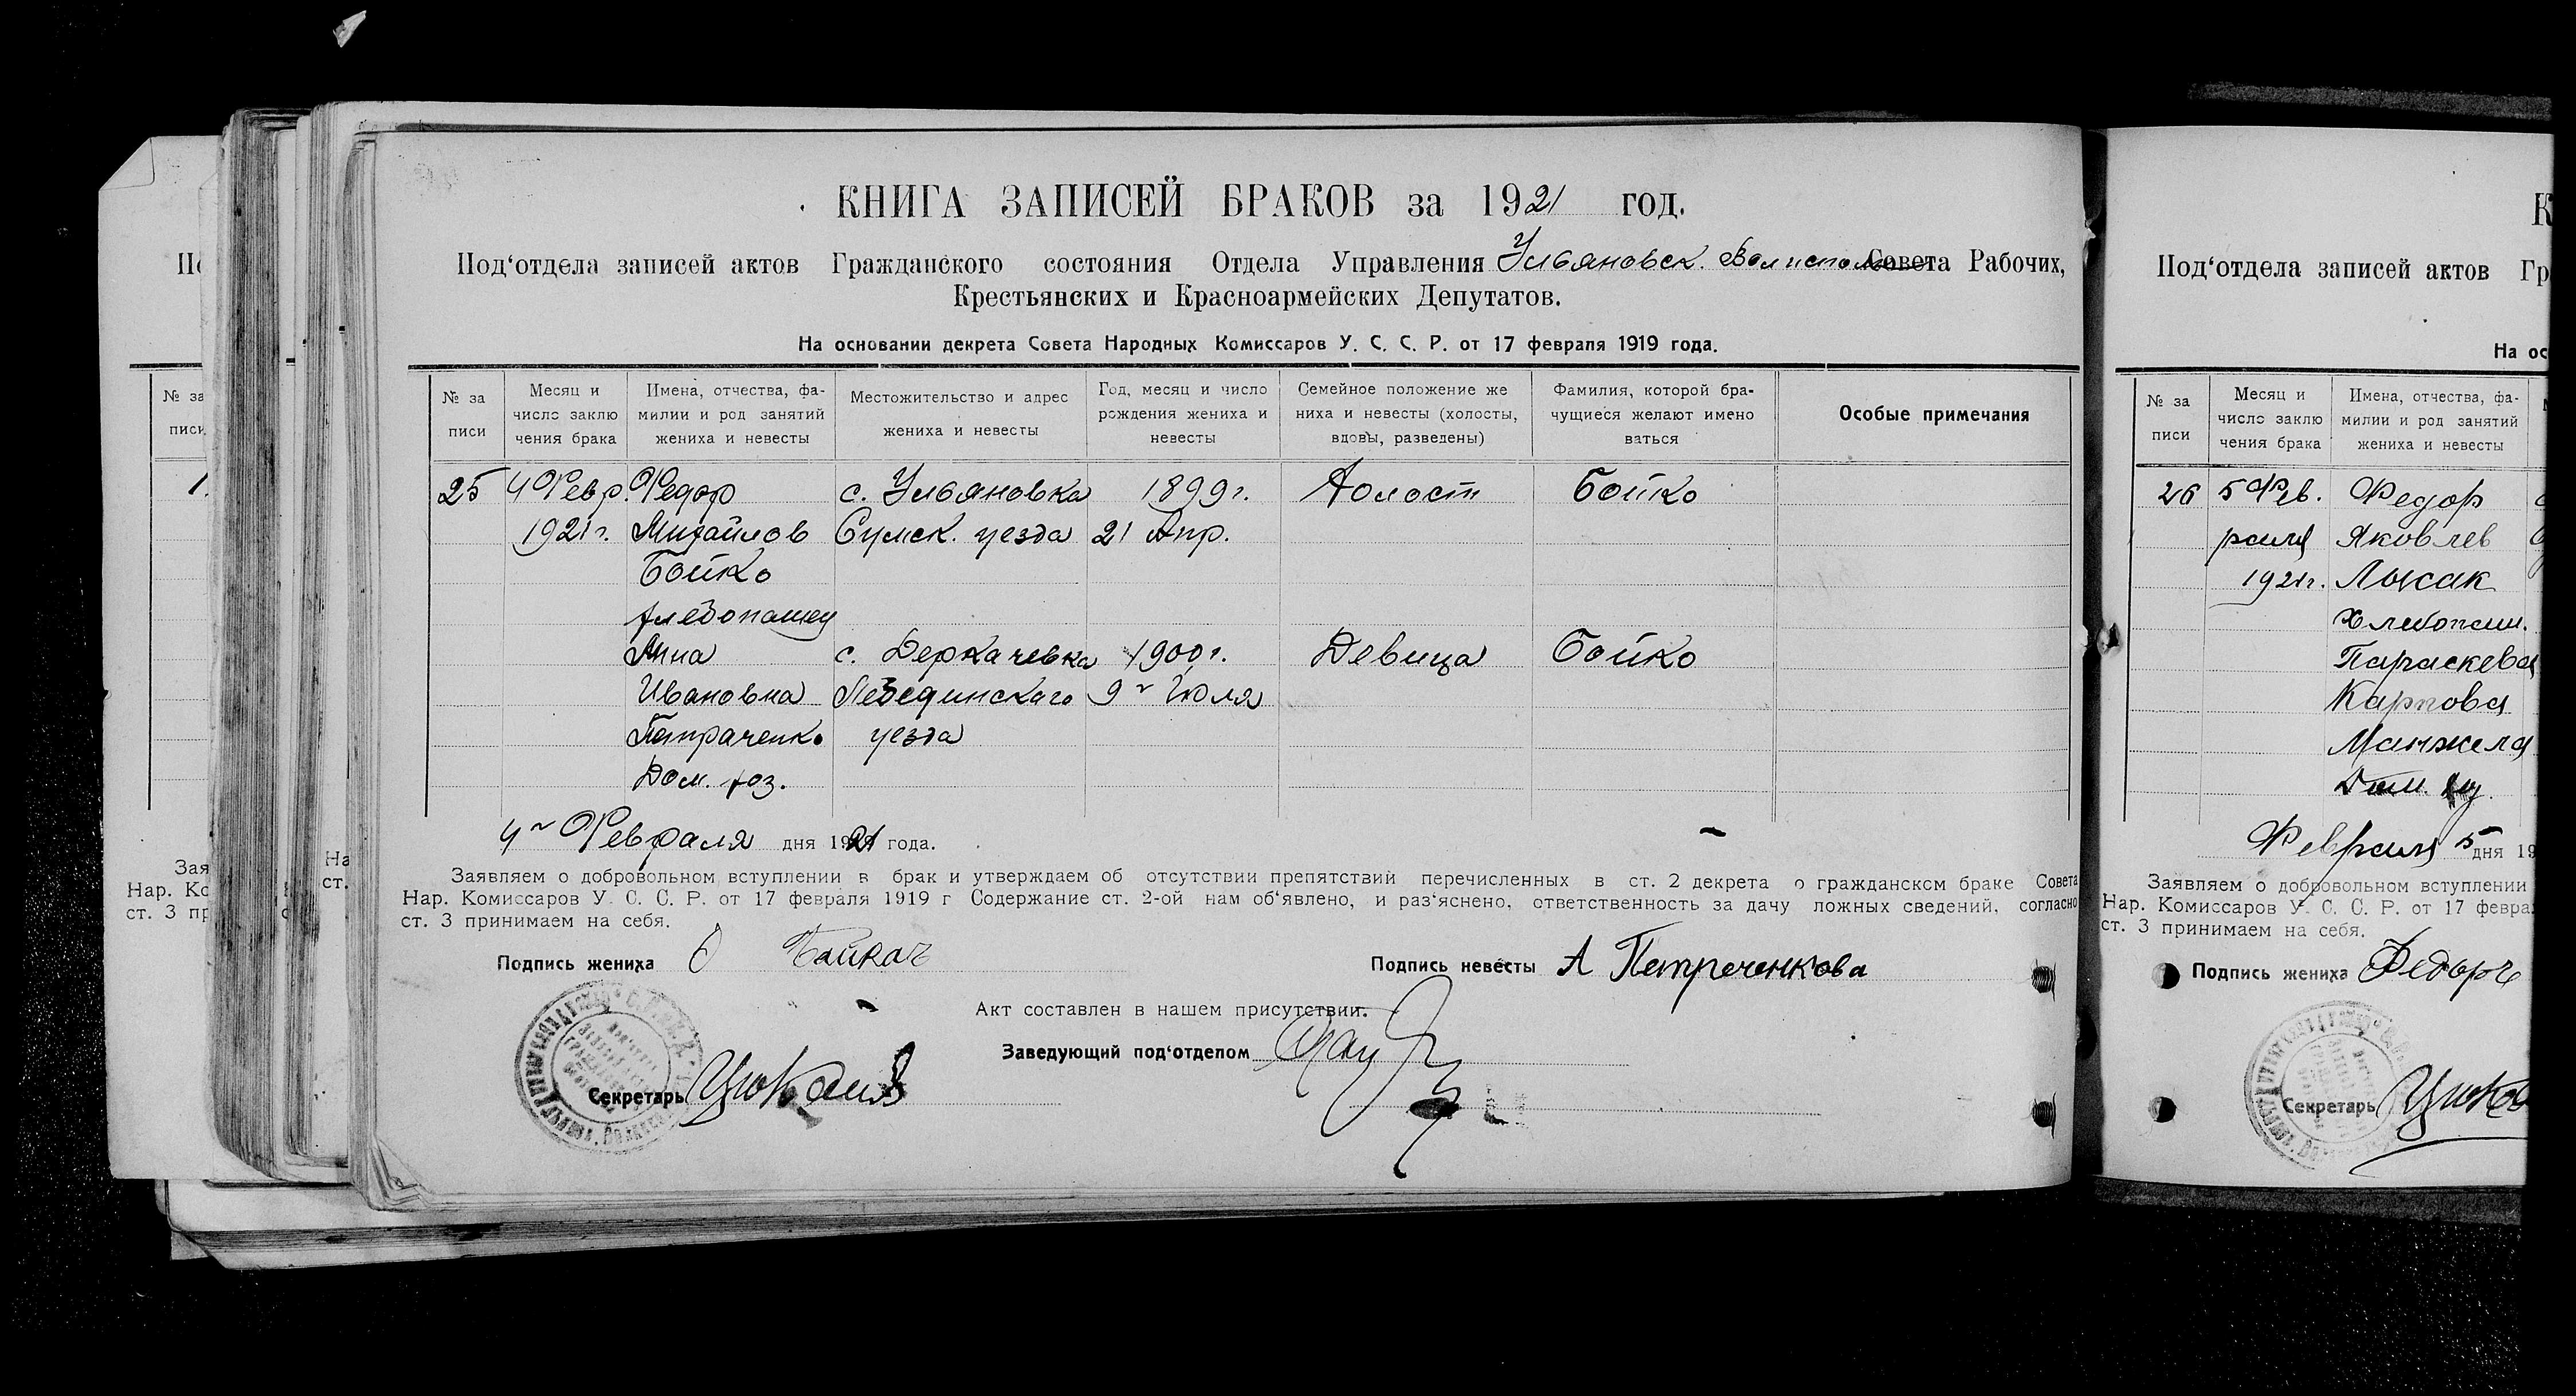 КНИГА ЗАПИСЕЙ БРАКОВ за 1921 год.
Под‘отдела записей актов Гражданского состояния Отдела Управления Ульяновск. Волисполк. Совета Рабочих,
Крестьянских и Красноармейских Депутатов.
На основании декрета Совета Народных Комиссаров У. С. С. Р. от 17 февраля 1919 года.
№ за писи
Месяц и число заклю чения брака
Имена, отчества, фа- милии и род занятий жениха и невесты
Местожительство и адрес жениха и невесты
Год, месяц и число рождения жениха и невесты
Семейное положение же ниха и невесты (холосты, вдовы, разведены)
Фамилия, которой бра- чущиеся желают имено ваться
Особые примечания
25 4 Февр. Федор с. Ульяновка 1899 г. Холост Бойко
1921 г. Михайлов Сумск. уезда 21 Апр.
Бойко
Хлебопашец
Анна с. Деркачевка 1900 г. Девица Бойко
Ивановна Лебединского 9 го Июля
Петраченко уезда
Дом. хоз.
4 го Февраля дня 1921 года.
Заявляем о добровольном вступлении в брак и утверждаем об отсутствии препятствий перечисленных в ст. 2 декрета о гражданском браке Совета
Нар. Комиссаров У. С. С. Р. от 17 февраля 1919 г Содержание ст. 2-ой нам об‘явлено, и раз‘яснено, ответственность за дачу ложных сведений, согласно
ст. 3 принимаем на себя.
Подпись жениха Бойкач
Подпись невесты А Петреченкова
Акт составлен в нашем присутствии.
Заведующий под‘отделом
Секретарь
К
Под‘отдела записей актов Гр
На ос
№ за писи
Месяц и число заклю чения брака
Имена, отчества, фа- милии и род занятий жениха и невесты
26 5 Фев. Федор
раля Яковлев
1921 г. Лысак
Хлебопаш.
Параскева
Карпова
Манжела
Дом. хоз.
Февраля 5 дня 19
Заявляем о добровольном вступлении
Нар. Комиссаров У. С. С. Р. от 17 февра
ст. 3 принимаем на себя.
Подпись жениха Федоръ
Секретарь
№ за
писи
1.
Зая
Нар. Ко
ст. 3 пр
На
ст.